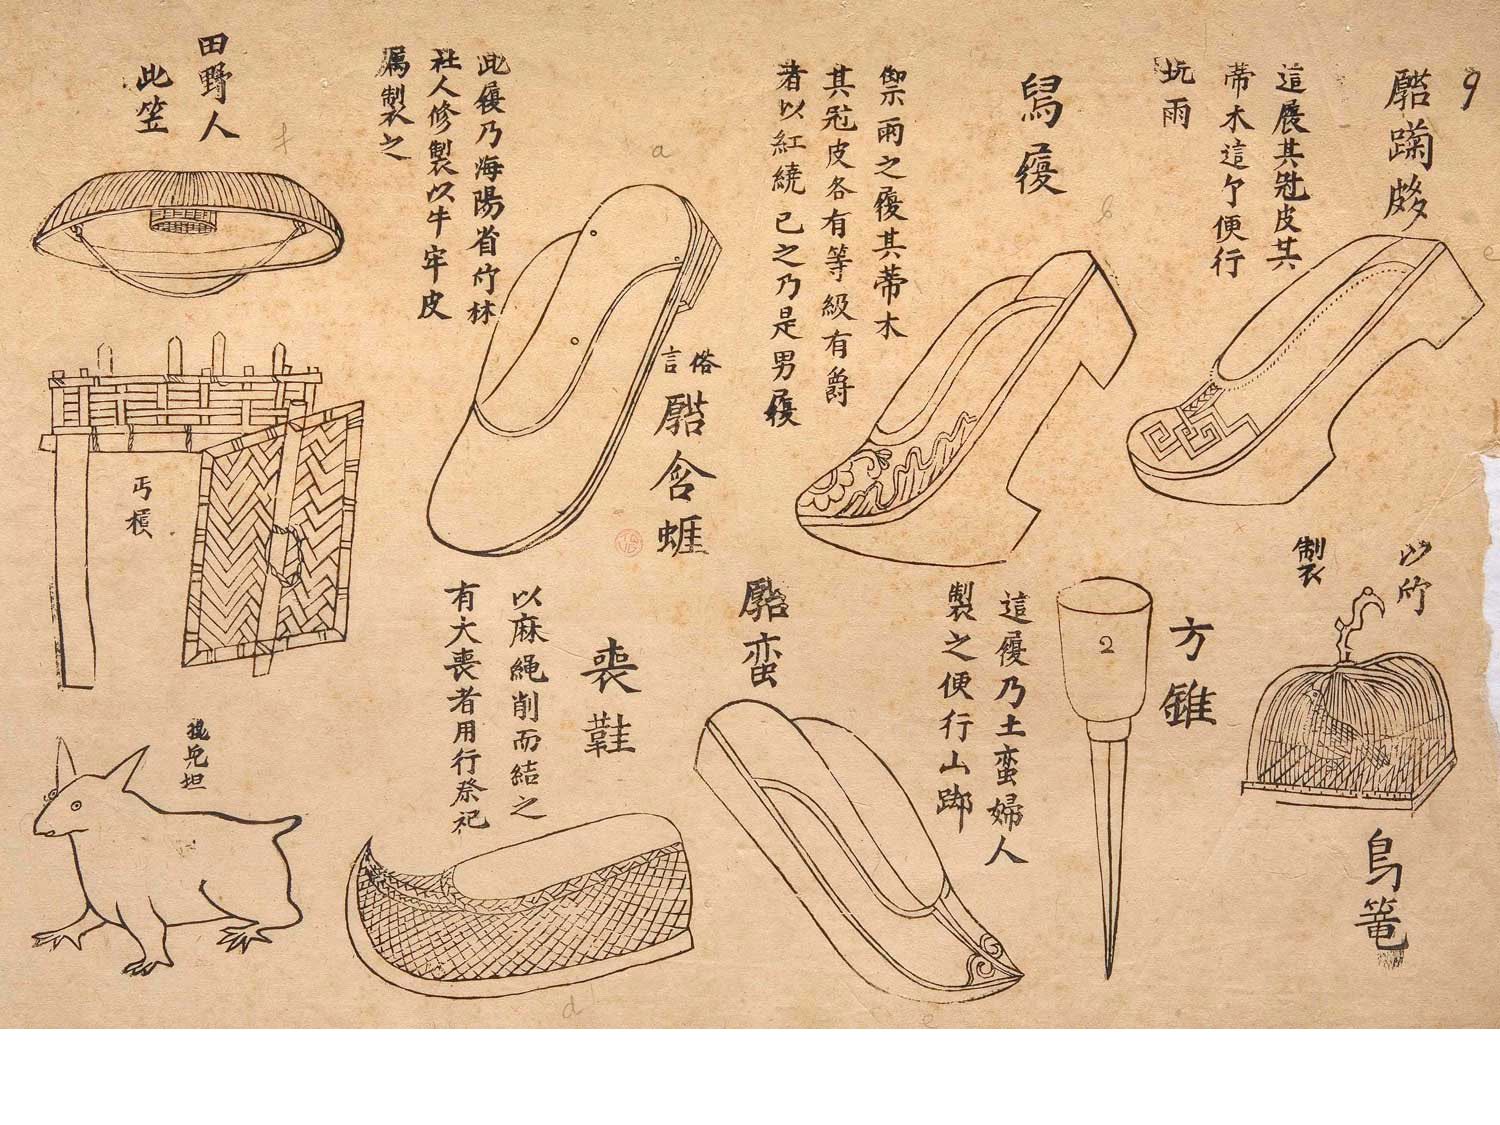 9
其
皮其
蒂木這
便行
玩雨
舄履
禦雨之履其蒂木
其冠皮各有等級有爵
者以紅繞已之乃是男履
俗言
含
此履乃海陽省竹林
社人修製以牛牢皮
属製之
田野人
此笠
丐檳
以竹
製
鳥篭
方錐
2
這履乃土蛮婦人
製之便行山
蛮
喪鞋
以麻繩削而結之
有大喪者用行祭祀
a
b
d
e